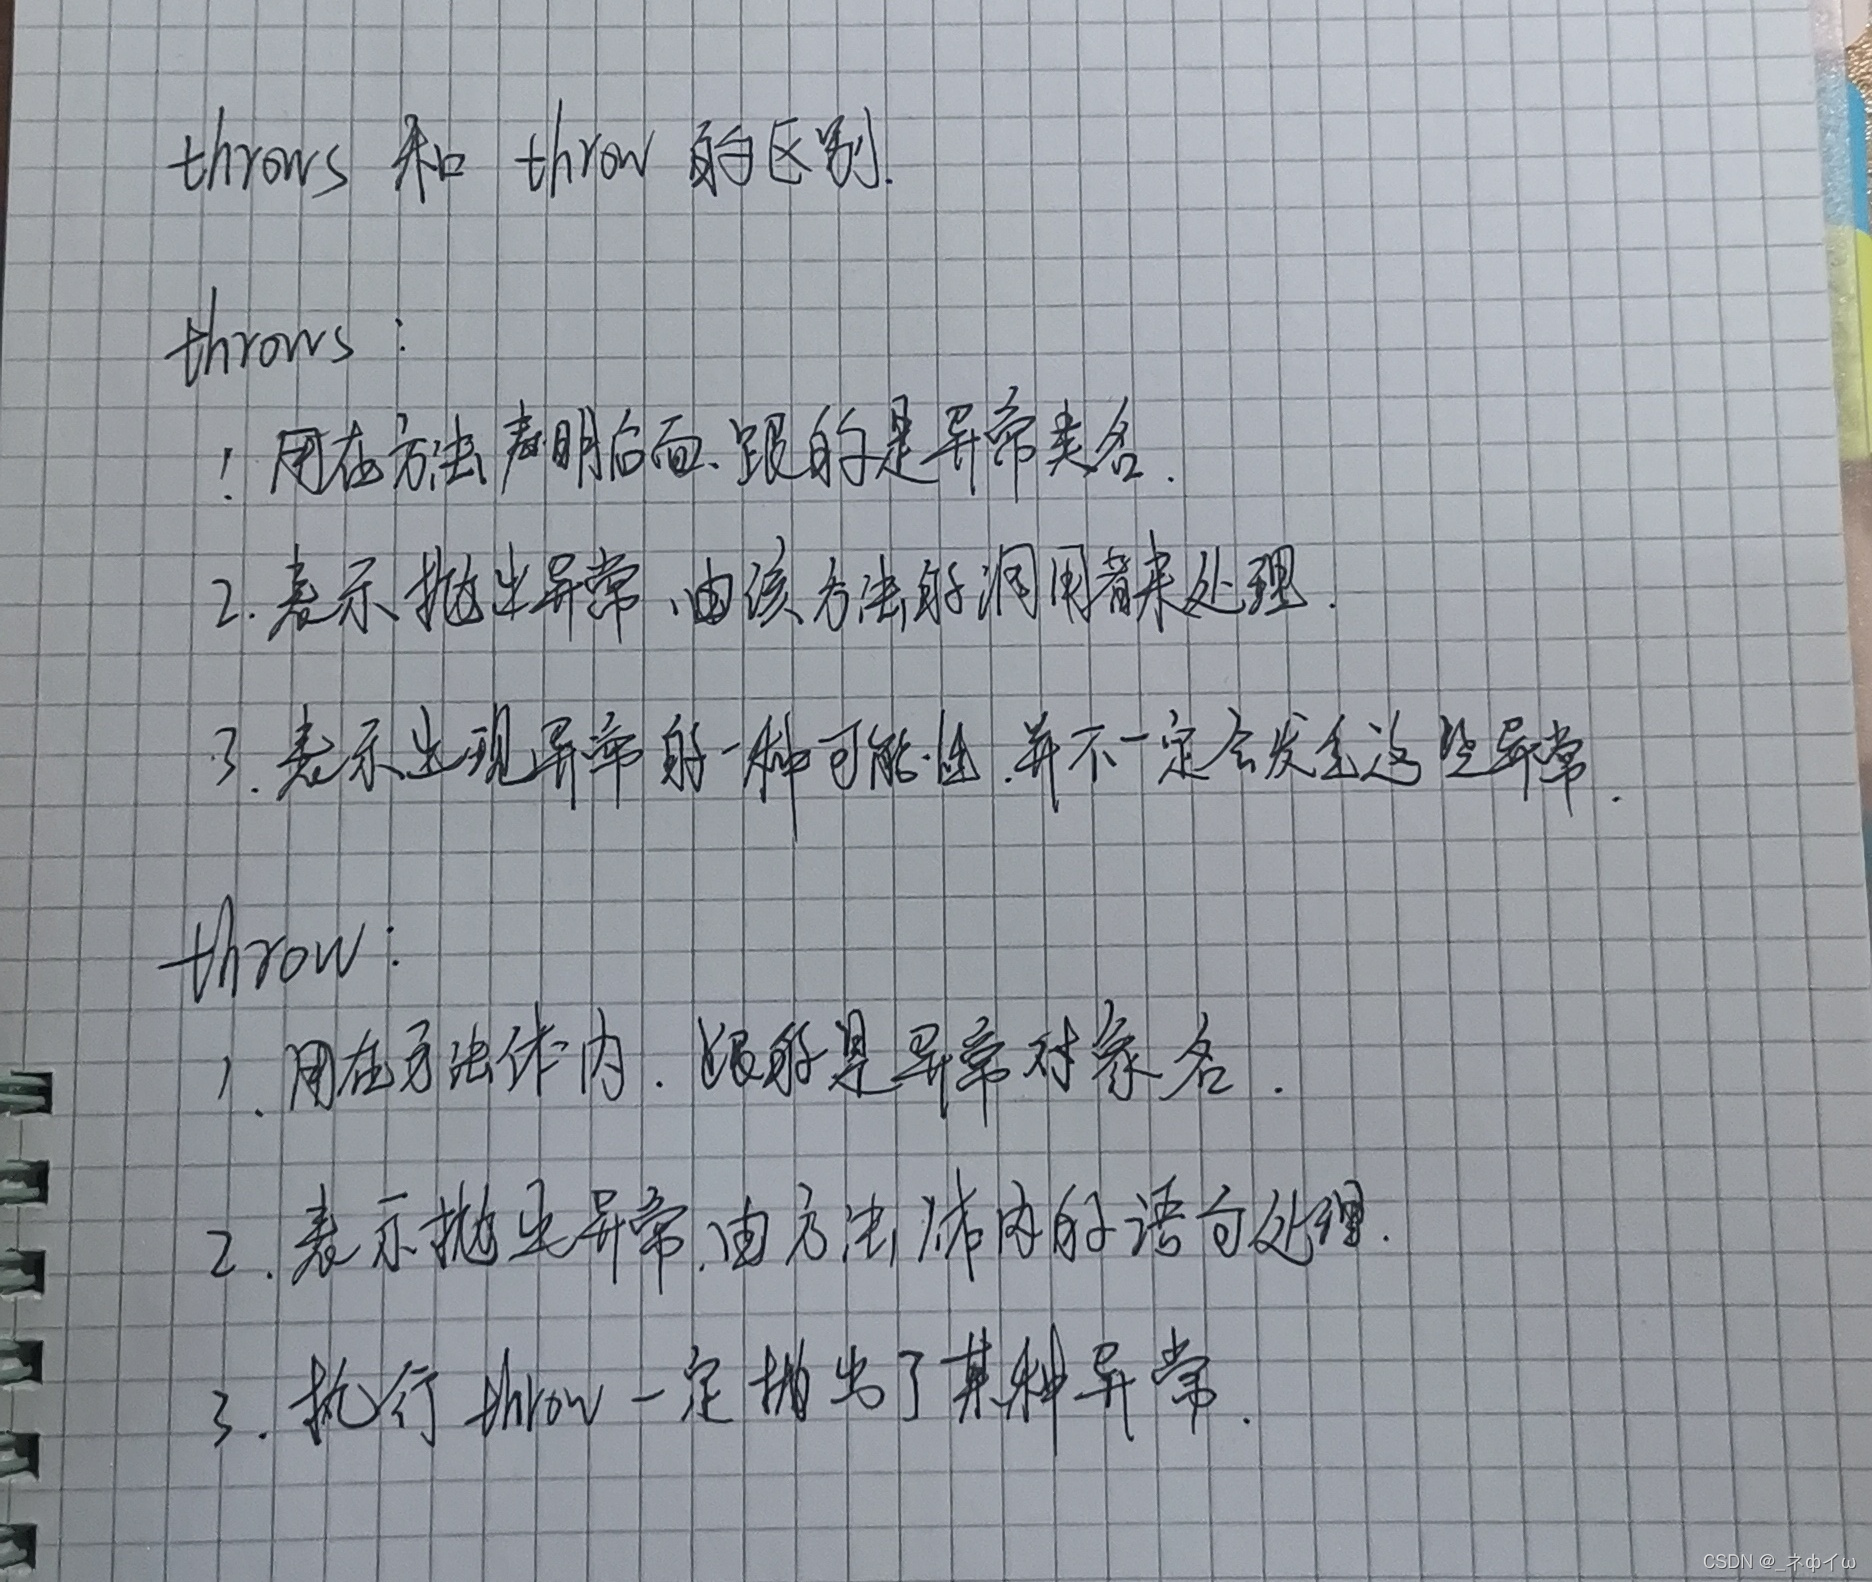 throws 和 throw 的区别.
throws:
1. 用在方法声明后面、跟的是异常类名.
2. 表示抛出异常、由该方法的调用者来处理.
3. 表示出现异常的一种可能性.并不一定会发生这些异常.
throw:
1. 用在方法体内.跟的是异常对象名.
2. 表示抛出异常.由方法体内的语句处理.
3. 执行 throw 一定抛出了某种异常.
CSDN @_ネфイω